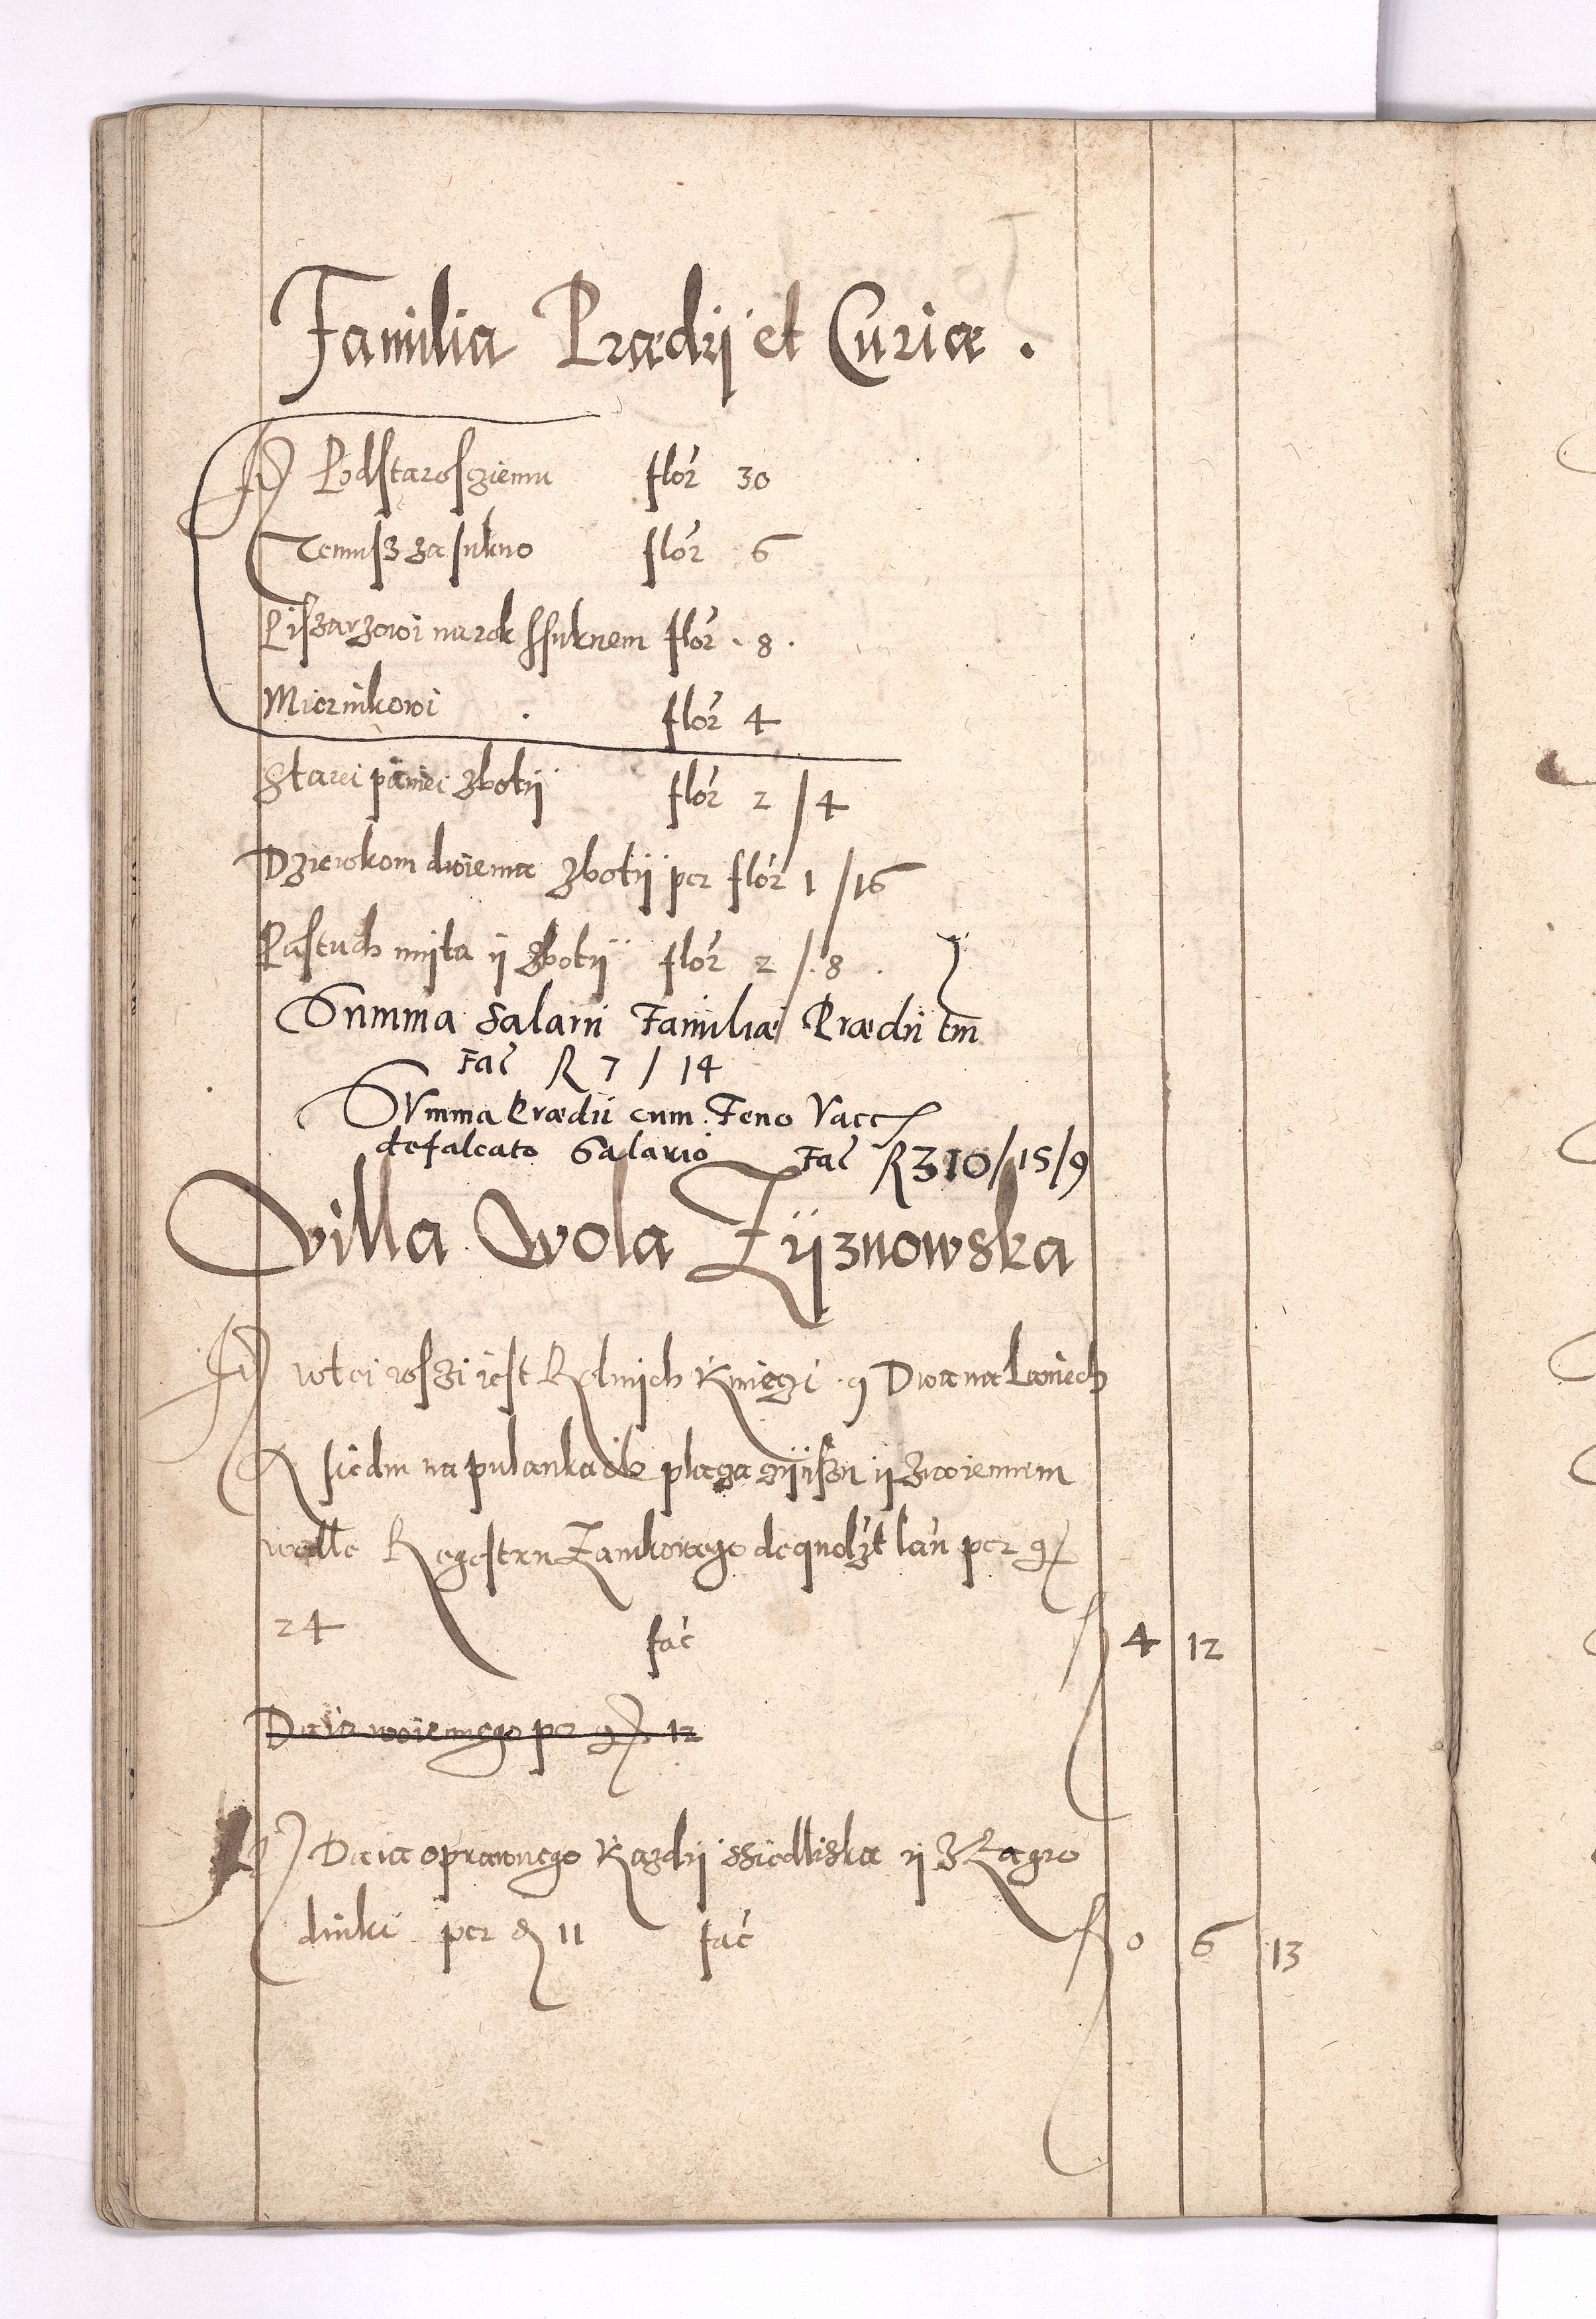 Familia Prædij et Curiæ.
Podstaroscziemu flor 30
Temusz za sukno flor 6
Piszarzowi na rok ssuknem flor . 8 .
Miernikowi . flor 4
Starei paniei zbotij flor 2 / 4
Dziewkom dwiema zbotij per flor 1 / 16
Pastuch mijta ij zbotij flor 2 / . 8 .
Summa Salarii Familiæ Prædii tm
Fac R 7 / 14
Summa Prædii cum Feno Vacc
defalcato Salario Fac R 310/15/9
Villa Wola Zijznowska
wtei wszi iest Rolnich Kmieczi . 9 Dwa na Laniech
A siedm na pulankach placza czijnszu ij zwoiennem
wedle Regestru Zamkowego de quolzt lan per g
24 fac 4 12
Daia woiennego per g 12
Daia oprawnego Kazdij ssiedliska ij z Zagro
dniki per g 11 fac 0 6 13